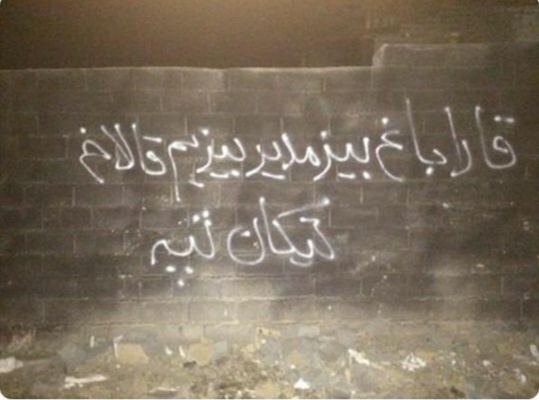 قاراباغ بیزمدیر بیزیم قالاخ
تیکان تپیه